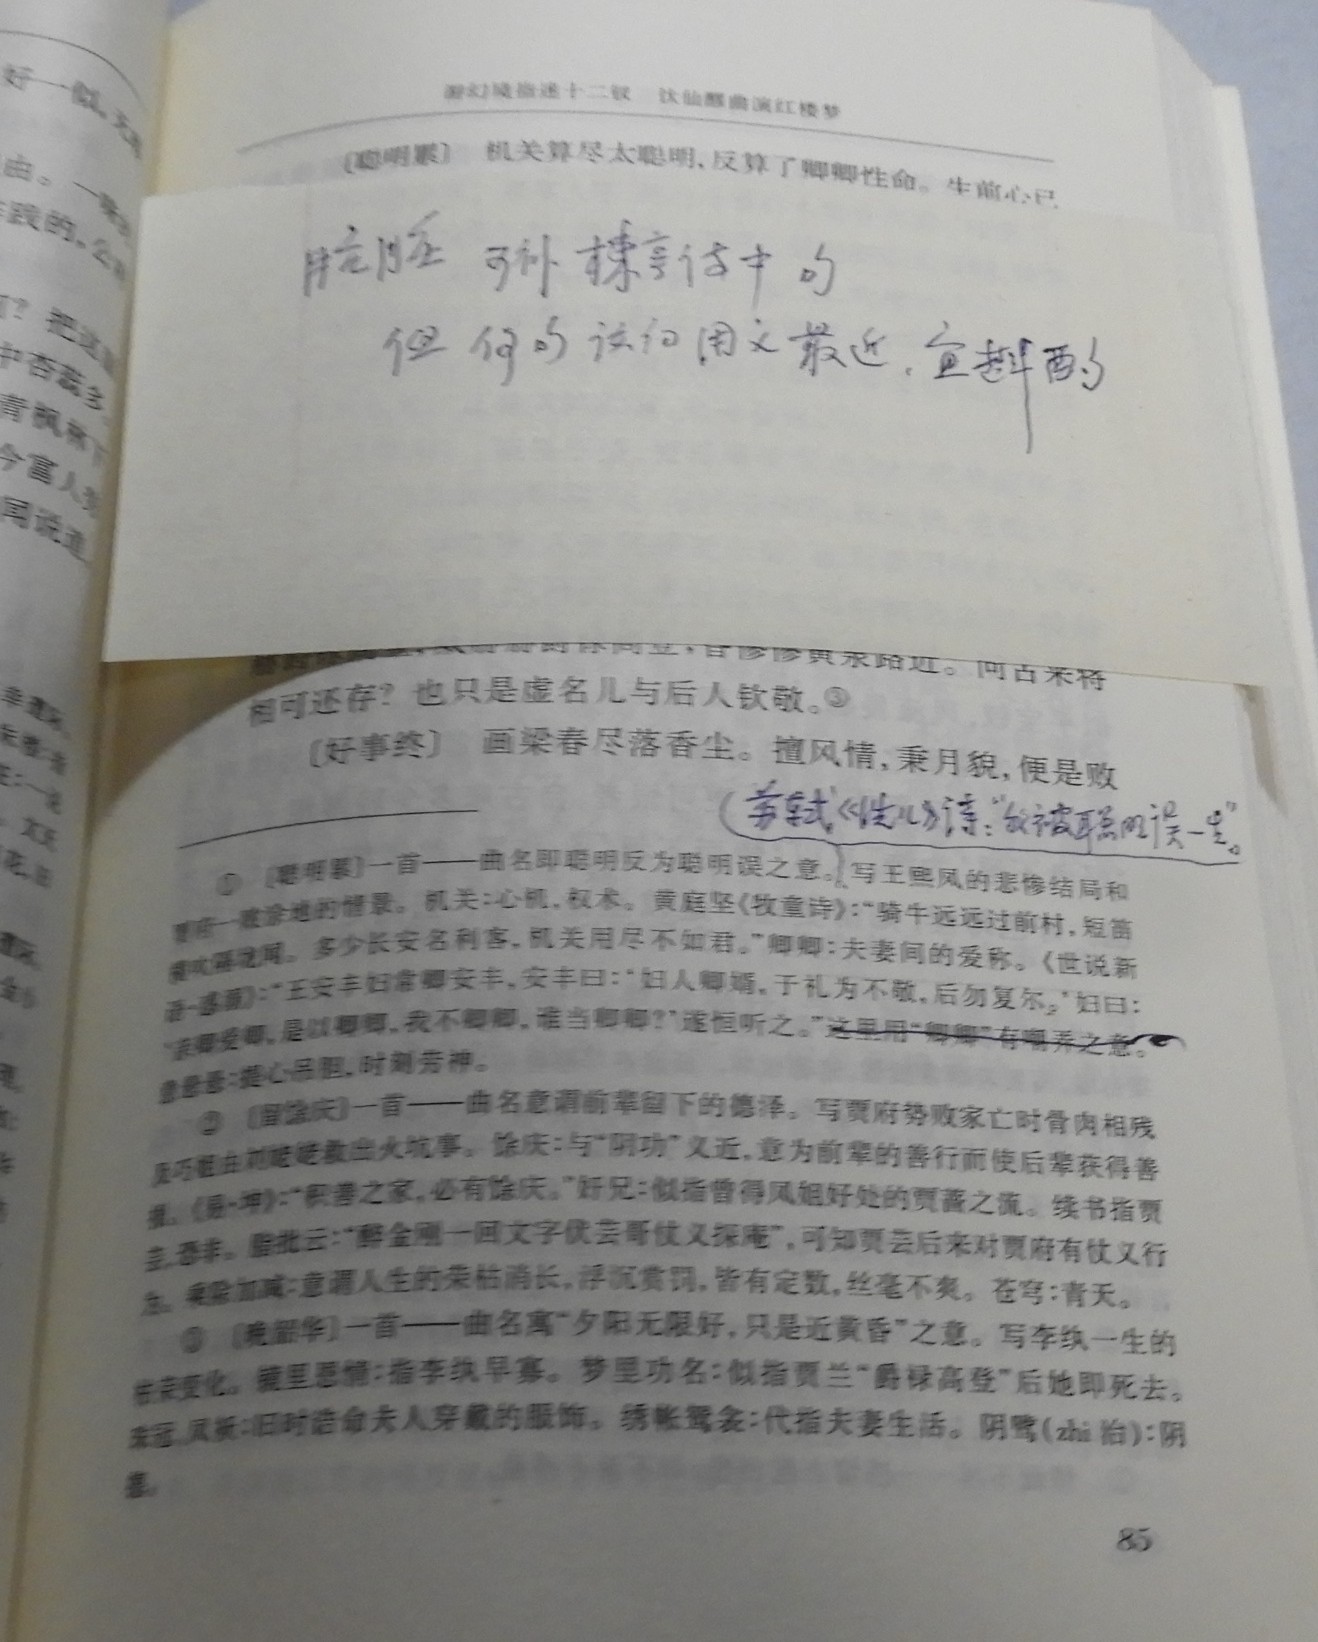 好一似
由。一
践的
？把
中杏蕊多
青枫林下
今富人
闻说道
游幻境指迷十二钗 饮仙醪曲演红楼梦
〔聪明累〕 机关算尽太聪明，反算了卿卿性命。生前心已
肮脏 可补 楝亭诗中的
但 何的 该句 用义 最近，宜斟酌
黄泉路近。问古来将
相可还存？也只是虚名儿与后人钦敬。③
〔好事终〕 画梁春尽落香尘。擅风情，秉月貌，便是败
（苏轼《洗儿》诗：“我被聪明误一生”。
① 〔聪明累〕一首——曲名即聪明反为聪明误之意。写王熙凤的悲惨结局和
贾府一败涂地的情景。机关：心机，权术。黄庭坚《牧童诗》：“骑牛远远过前村，短笛
横吹隔垅闻。多少长安名利客，机关用尽不如君。”卿卿：夫妻间的爱称。《世说新
语·惑溺》：“王安丰妇常卿安丰，安丰曰：‘妇人卿婿，于礼为不敬，后勿复尔。’妇曰：
‘亲卿爱卿，是以卿卿，我不卿卿，谁当卿卿？’遂恒听之。”这里用“卿卿”有嘲弄之意。
意悬悬：提心吊胆，时刻劳神。
② 〔留馀庆〕一首——曲名意谓前辈留下的德泽。写贾府势败家亡时骨肉相残
及巧姐由刘姥姥救出火坑事。馀庆：与“阴功”义近，意为前辈的善行而使后辈获得善
报。《易·坤》：“积善之家，必有馀庆。”奸兄：似指曾得凤姐好处的贾蔷之流。续书指贾
芸，恐非。脂批云：“醉金刚一回文字伏芸哥仗义探庵”，可知贾芸后来对贾府有仗义行
为。乘除加减：意谓人生的荣枯消长，浮沉赏罚，皆有定数，丝毫不爽。苍穹：青天。
③ 〔晚韶华〕一首——曲名寓“夕阳无限好，只是近黄昏”之意。写李纨一生的
枯荣变化。镜里恩情：指李纨早寡。梦里功名：似指贾兰“爵禄高登”后她即死去。
珠冠、凤袄：旧时诰命夫人穿戴的服饰。绣帐鸳衾：代指夫妻生活。阴骘（zhì治）：阴
德。
85